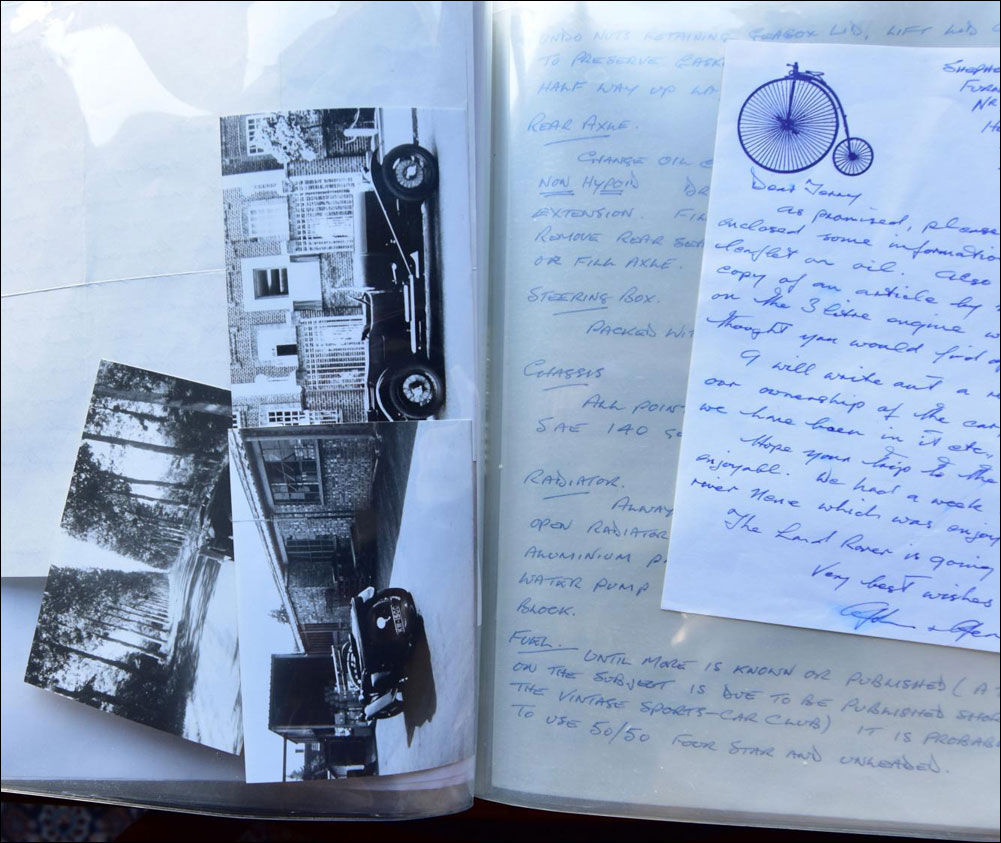 UNDO NUTS RETAINING GEARBOX LID, LIFT LID
TO PRESERVE GASK
HALF WAY UP
REAR AXLE.
CHANGE OIL
NON HYPOID DR
EXTENSION. FIL
REMOVE REAR SE
OR FILL AXLE.
STEERING BOX.
PACKED WIT
CHASSIS
ALL POINT
SAE 140
RADIATOR.
ALWAY
OPEN RADIATOR
ALUMINIUM P
WATER PUMP
BLOCK.
FUEL. UNTIL MORE IS KNOWN OR PUBLISHED (A
ON THE SUBJECT IS DUE TO BE PUBLISHED SHOR
THE VINTAGE SPORTS-CAR CLUB) IT IS PROBAB
TO USE 50/50 FOUR STAR AND UNLEADED.
SHEPHE
FURN
NR
H
Dear Terry
as promised, please
enclosed some information
leaflet on oil. Also
copy of an article by
on the 3 litre engine w
thought you would find
I will write out a
our ownership of the car
we have been in it etc,
Hope your trip to the
enjoyable. We had a week
river Nene which was enjoy
The Land Rover is going
Very best wishes